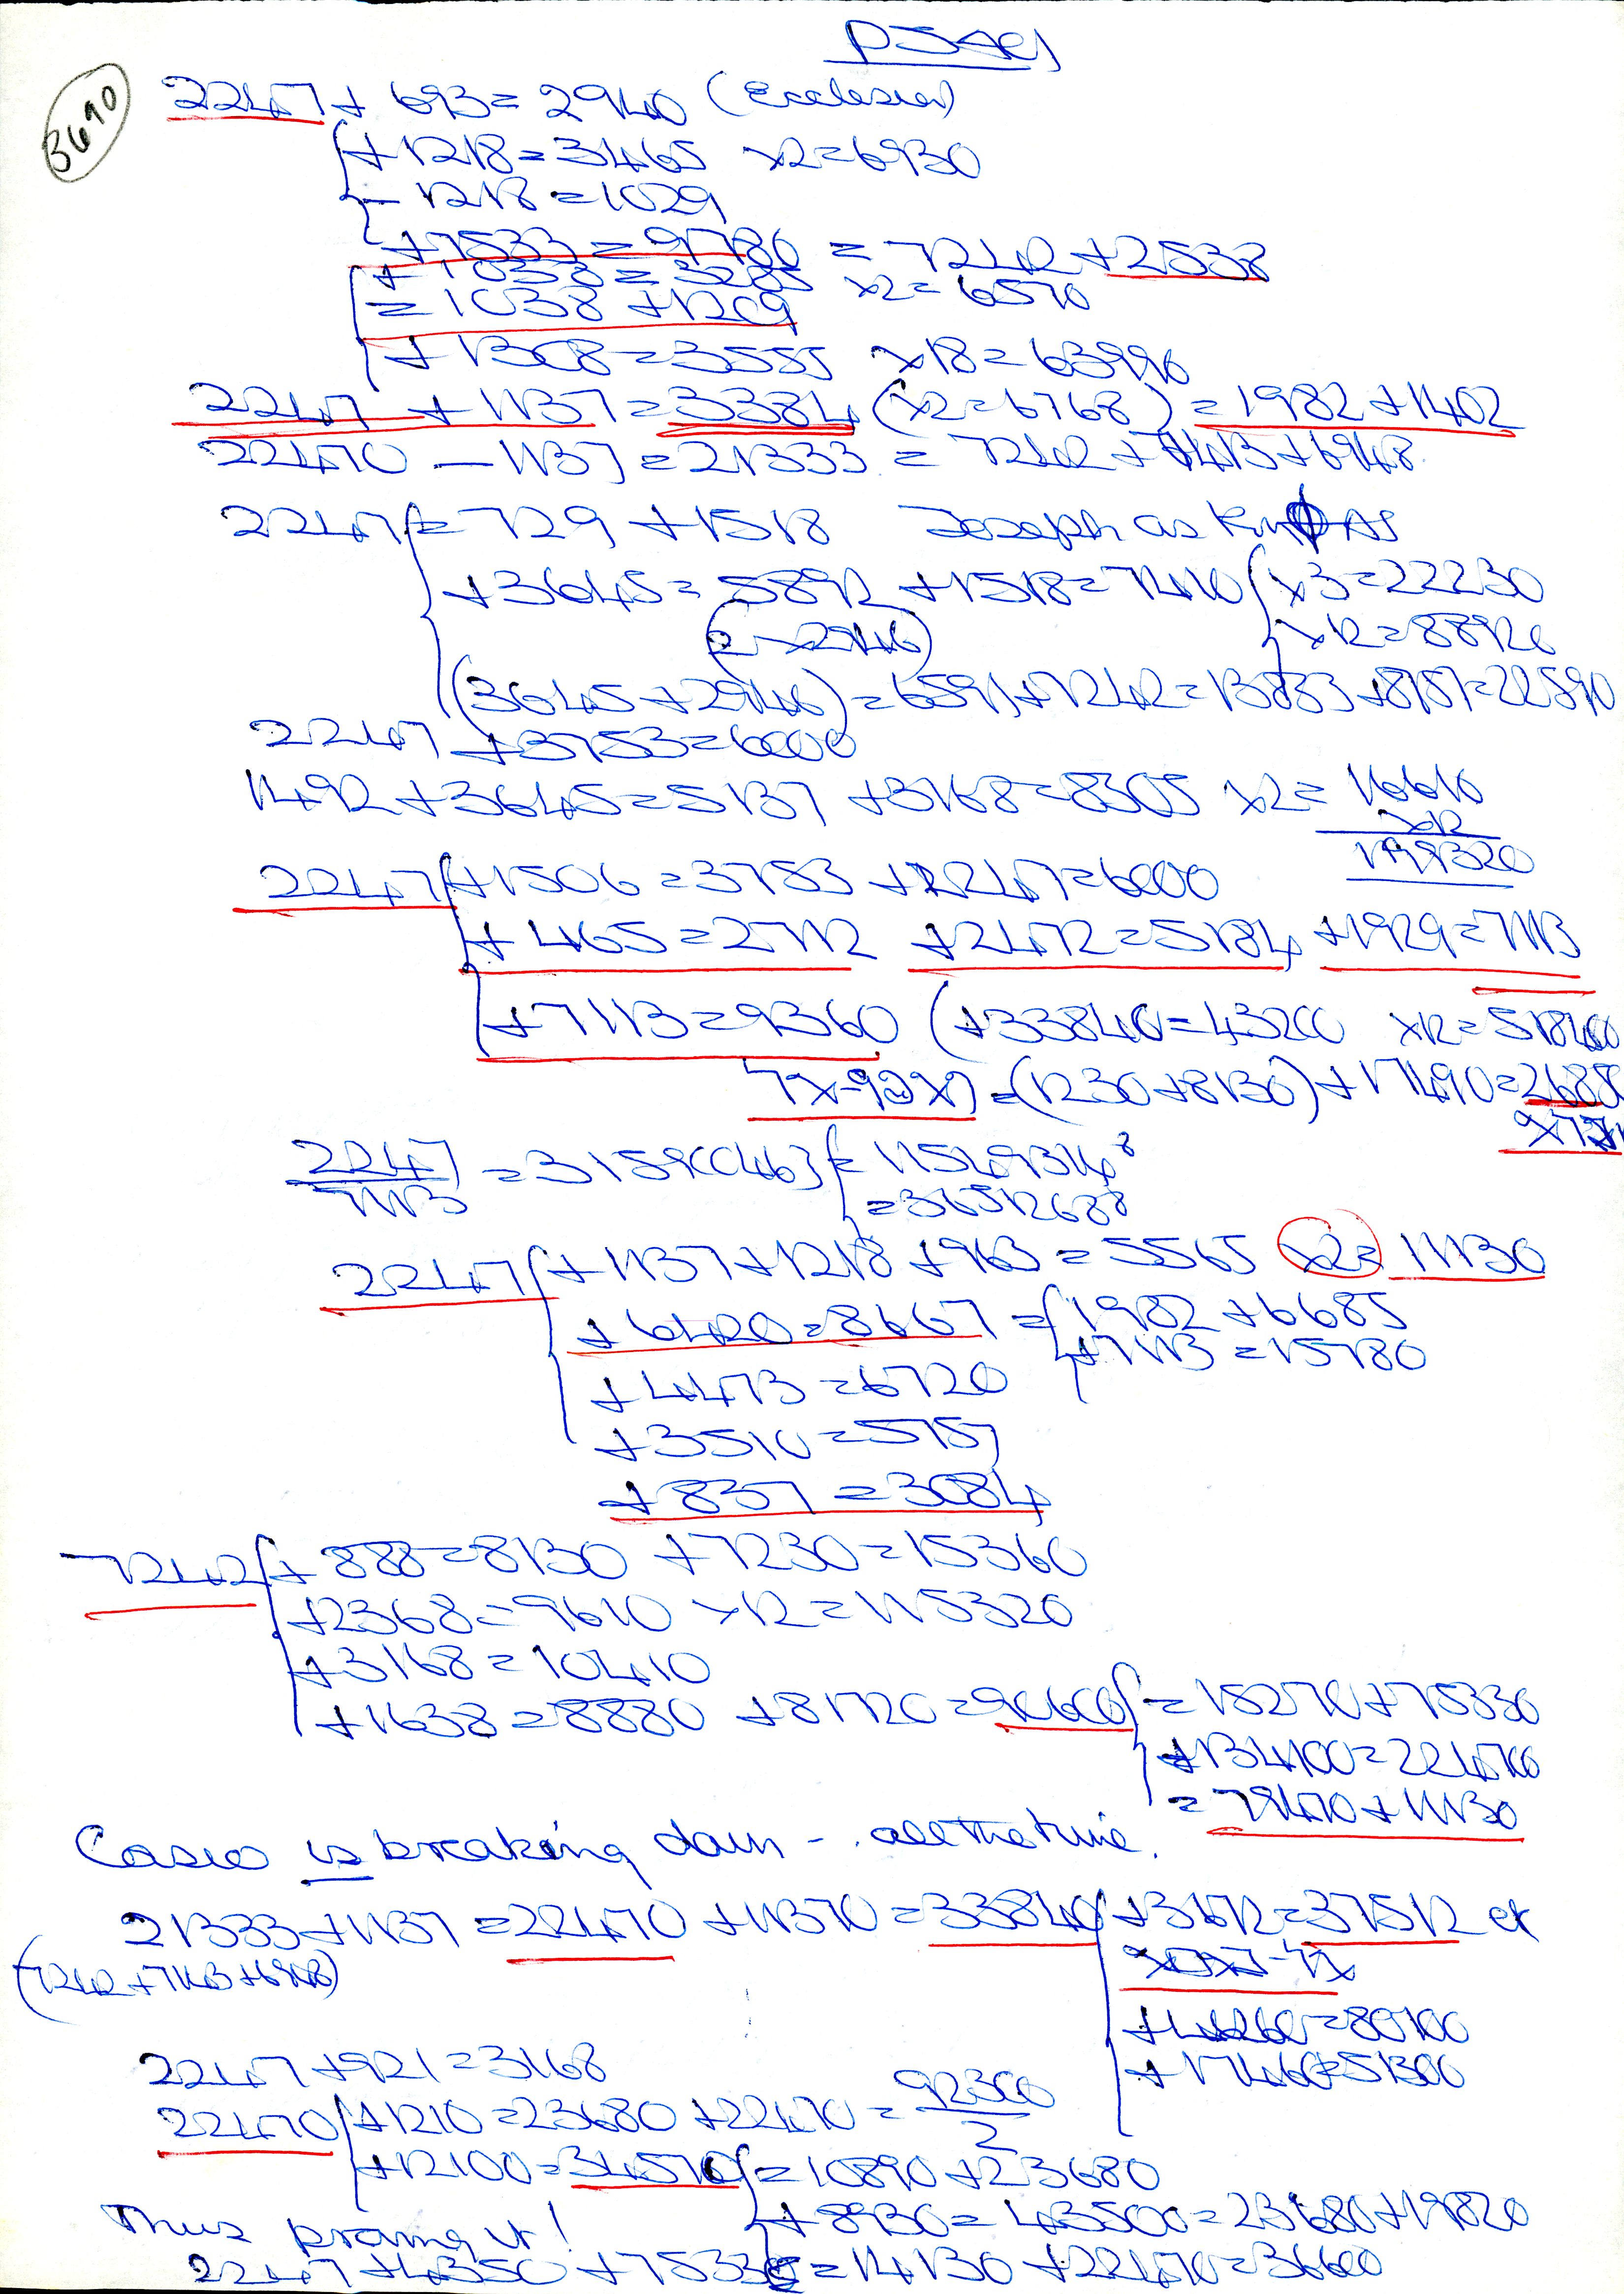 3690
2247 + 693 = 2940 (Ecclesia)
+ 1218 = 3465 x2 = 6930
- 1218 = 1029
+ 7533 = 9780 = 7242 + 2538
+ 1038 = 3285 x2 = 6570
= 1038 + 1209
+ 1308 = 3555 x18 = 63990
2247 + 1137 = 3384 (x2 = 6768) = 1982 + 1402
22470 - 1137 = 21333 = 7242 + 7143 + 6948
2247 = 729 + 1518 Joseph as
+ 3645 = 5892 + 1518 = 7410 x3 = 22230
(2 x 2946) x12 = 88920
(3645 + 2946) = 6591 + 7242 = 13833 + 8757 = 22590
2247 + 3753 = 6000
1492 + 3645 = 5137 + 3168 = 8305 x2 = 16610
x12
199320
2247 + 1506 = 3753 + 2247 = 6000
+ 465 = 2712 + 2472 = 5184 + 1929 = 7113
+ 7113 = 9360 (+ 33840 = 43200 x12 = 518400
= (1230 + 8130) + 17490 = 
2247
7113 = 3159
2247 + 1137 + 1218 + 963 = 5565 x2 = 11130
+ 6420 = 8667 = 1982 + 6685
+ 7113 = 15780
+ 4473 = 6720
+ 3510 = 5757
+ 837 = 3084
7242 + 888 = 8130 + 7230 = 15360
+ 2368 = 9610 x12 = 115320
+ 3168 = 10410
+ 1638 = 8880 + 81720 = 90600 = 15270 + 75330
+ 134100 = 224700
= 79470 + 11130
Casio is breaking down - all the time.
21333 + 1137 = 22470 + 11370 = 33840 + 3672 = 37512
(7242 + 7143 + 6948)
+ 46260 = 80100
+ 17460 = 51300
2247 + 921 = 3168
22470 + 1210 = 23680 + 22470 = 92300
2
+ 12100 = 34570 = 10890 + 23680
+ 8930 = 43500 = 23680 + 19820
Thus proving it!
2247 + 4350 + 7533 = 14130 + 22470 = 36600